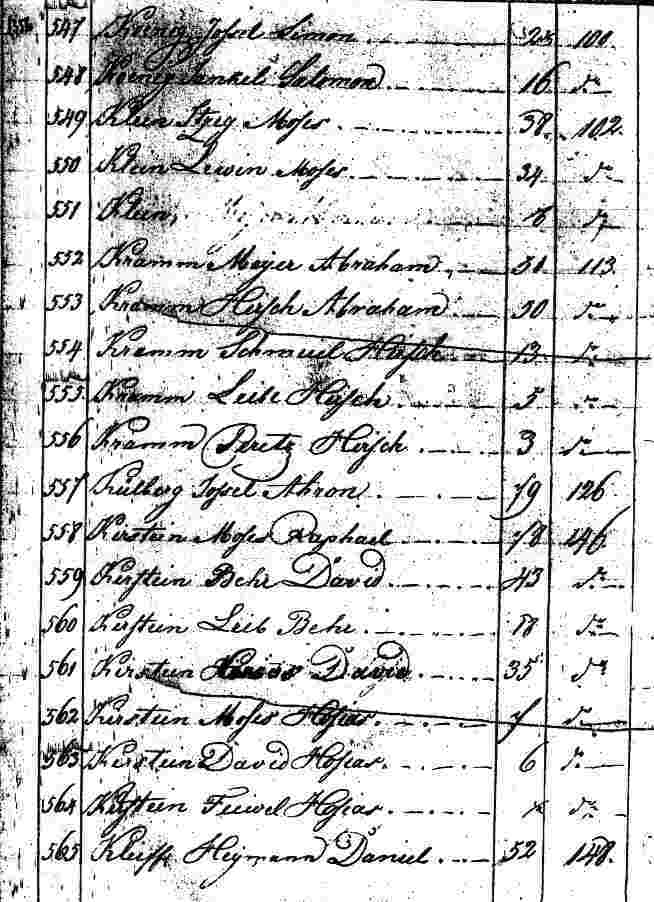 547 Koenig Jossel Simon 100.
548 Koenig Jankel Salomon 16 do
549 Klein Itzig Moses 38. 102.
550 Klein Lewin Moses 34 do
551 Klein, 8 do
552 Kramm Meyer Abraham 113.
553 Kramm Hirsch Abraham 30 do
554 Kramm Schmuel Hirsch 13 do
555 Kramm Leibe Hirsch 5 do
556 Kramm Peretz Hirsch 3 do
557 Kulberg Jossel Ahron 79 126.
558 Kerstein Moses Raphael 78 146.
559 Kerstein Behr David 43 do
560 Kerstein Leib Behr do
561 Kerstein David 35 do
562 Kerstein Moses Hosias 7 do
563 Kerstein David Hosias 6 do
564 Kerstein Feiwel Hosias do
565 Heymann Daniel 52 148.